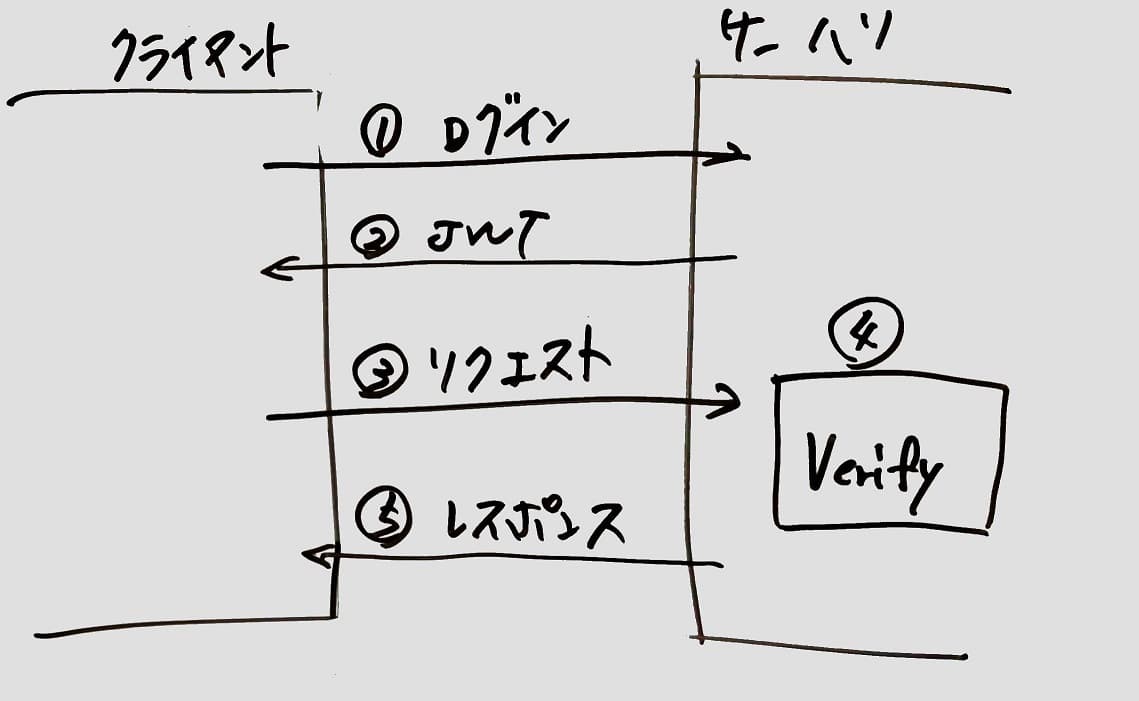 クライアント
サーバ
① ログイン
② JWT
③ リクエスト
④
Verify
⑤ レスポンス